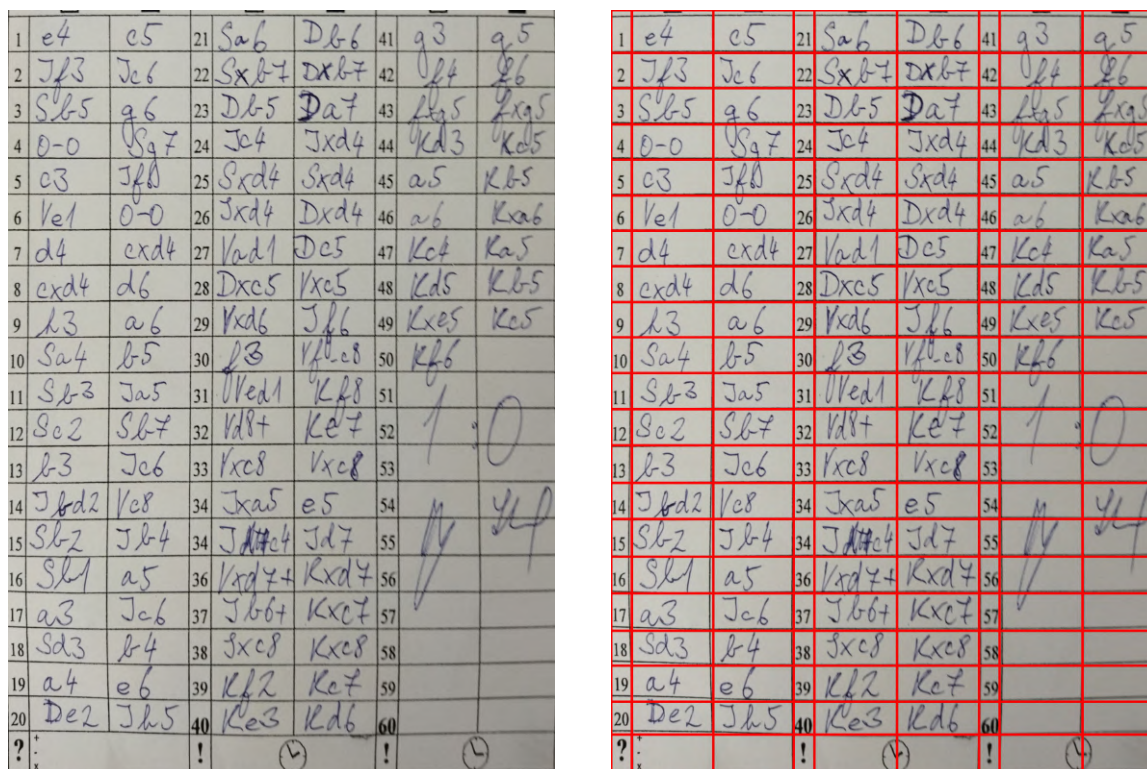 1 e4 c5 21 Sa6 Db6 41 g3 g5
2 Jf3 Jc6 22 Sxb7 Dxb7 42 f4 f6
3 Sb5 g6 23 Db5 Da7 43 fxg5 fxg5
4 0-0 Sg7 24 Jc4 Jxd4 44 Kd3 Kc5
5 c3 Jf6 25 Sxd4 Sxd4 45 a5 Kb5
6 Ve1 0-0 26 Jxd4 Dxd4 46 a6 Kxa6
7 d4 cxd4 27 Vad1 Dc5 47 Kc4 Ka5
8 cxd4 d6 28 Dxc5 Vxc5 48 Kd5 Kb5
9 h3 a6 29 Vxd6 Jf6 49 Kxe5 Kc5
10 Sa4 b5 30 f3 Vf-c8 50 Kf6
11 Sb3 Ja5 31 Ved1 Kf8 51
12 Sc2 Sb7 32 Vd8+ Ke7 52 1 : 0
13 b3 Jc6 33 Vxc8 Vxc8 53
14 Jbd2 Vc8 34 Jxa5 e5 54
15 Sb2 Jb4 34 Jc4 Jd7 55
16 Sb1 a5 36 Vxd7+ Kxd7 56
17 a3 Jc6 37 Jb6+ Kxc7 57
18 Sd3 b4 38 Jxc8 Kxc8 58
19 a4 e6 39 Kf2 Kc7 59
20 De2 Jh5 40 Ke3 Kd6 60
? ! !
1 e4 c5 21 Sa6 Db6 41 g3 g5
2 Jf3 Jc6 22 Sxb7 Dxb7 42 f4 f6
3 Sb5 g6 23 Db5 Da7 43 fxg5 fxg5
4 0-0 Sg7 24 Jc4 Jxd4 44 Kd3 Kc5
5 c3 Jf6 25 Sxd4 Sxd4 45 a5 Kb5
6 Ve1 0-0 26 Jxd4 Dxd4 46 a6 Kxa6
7 d4 cxd4 27 Vad1 Dc5 47 Kc4 Ka5
8 cxd4 d6 28 Dxc5 Vxc5 48 Kd5 Kb5
9 h3 a6 29 Vxd6 Jf6 49 Kxe5 Kc5
10 Sa4 b5 30 f3 Vf-c8 50 Kf6
11 Sb3 Ja5 31 Ved1 Kf8 51
12 Sc2 Sb7 32 Vd8+ Ke7 52 1 : 0
13 b3 Jc6 33 Vxc8 Vxc8 53
14 Jbd2 Vc8 34 Jxa5 e5 54
15 Sb2 Jb4 34 Jc4 Jd7 55
16 Sb1 a5 36 Vxd7+ Kxd7 56
17 a3 Jc6 37 Jb6+ Kxc7 57
18 Sd3 b4 38 Jxc8 Kxc8 58
19 a4 e6 39 Kf2 Kc7 59
20 De2 Jh5 40 Ke3 Kd6 60
? ! !